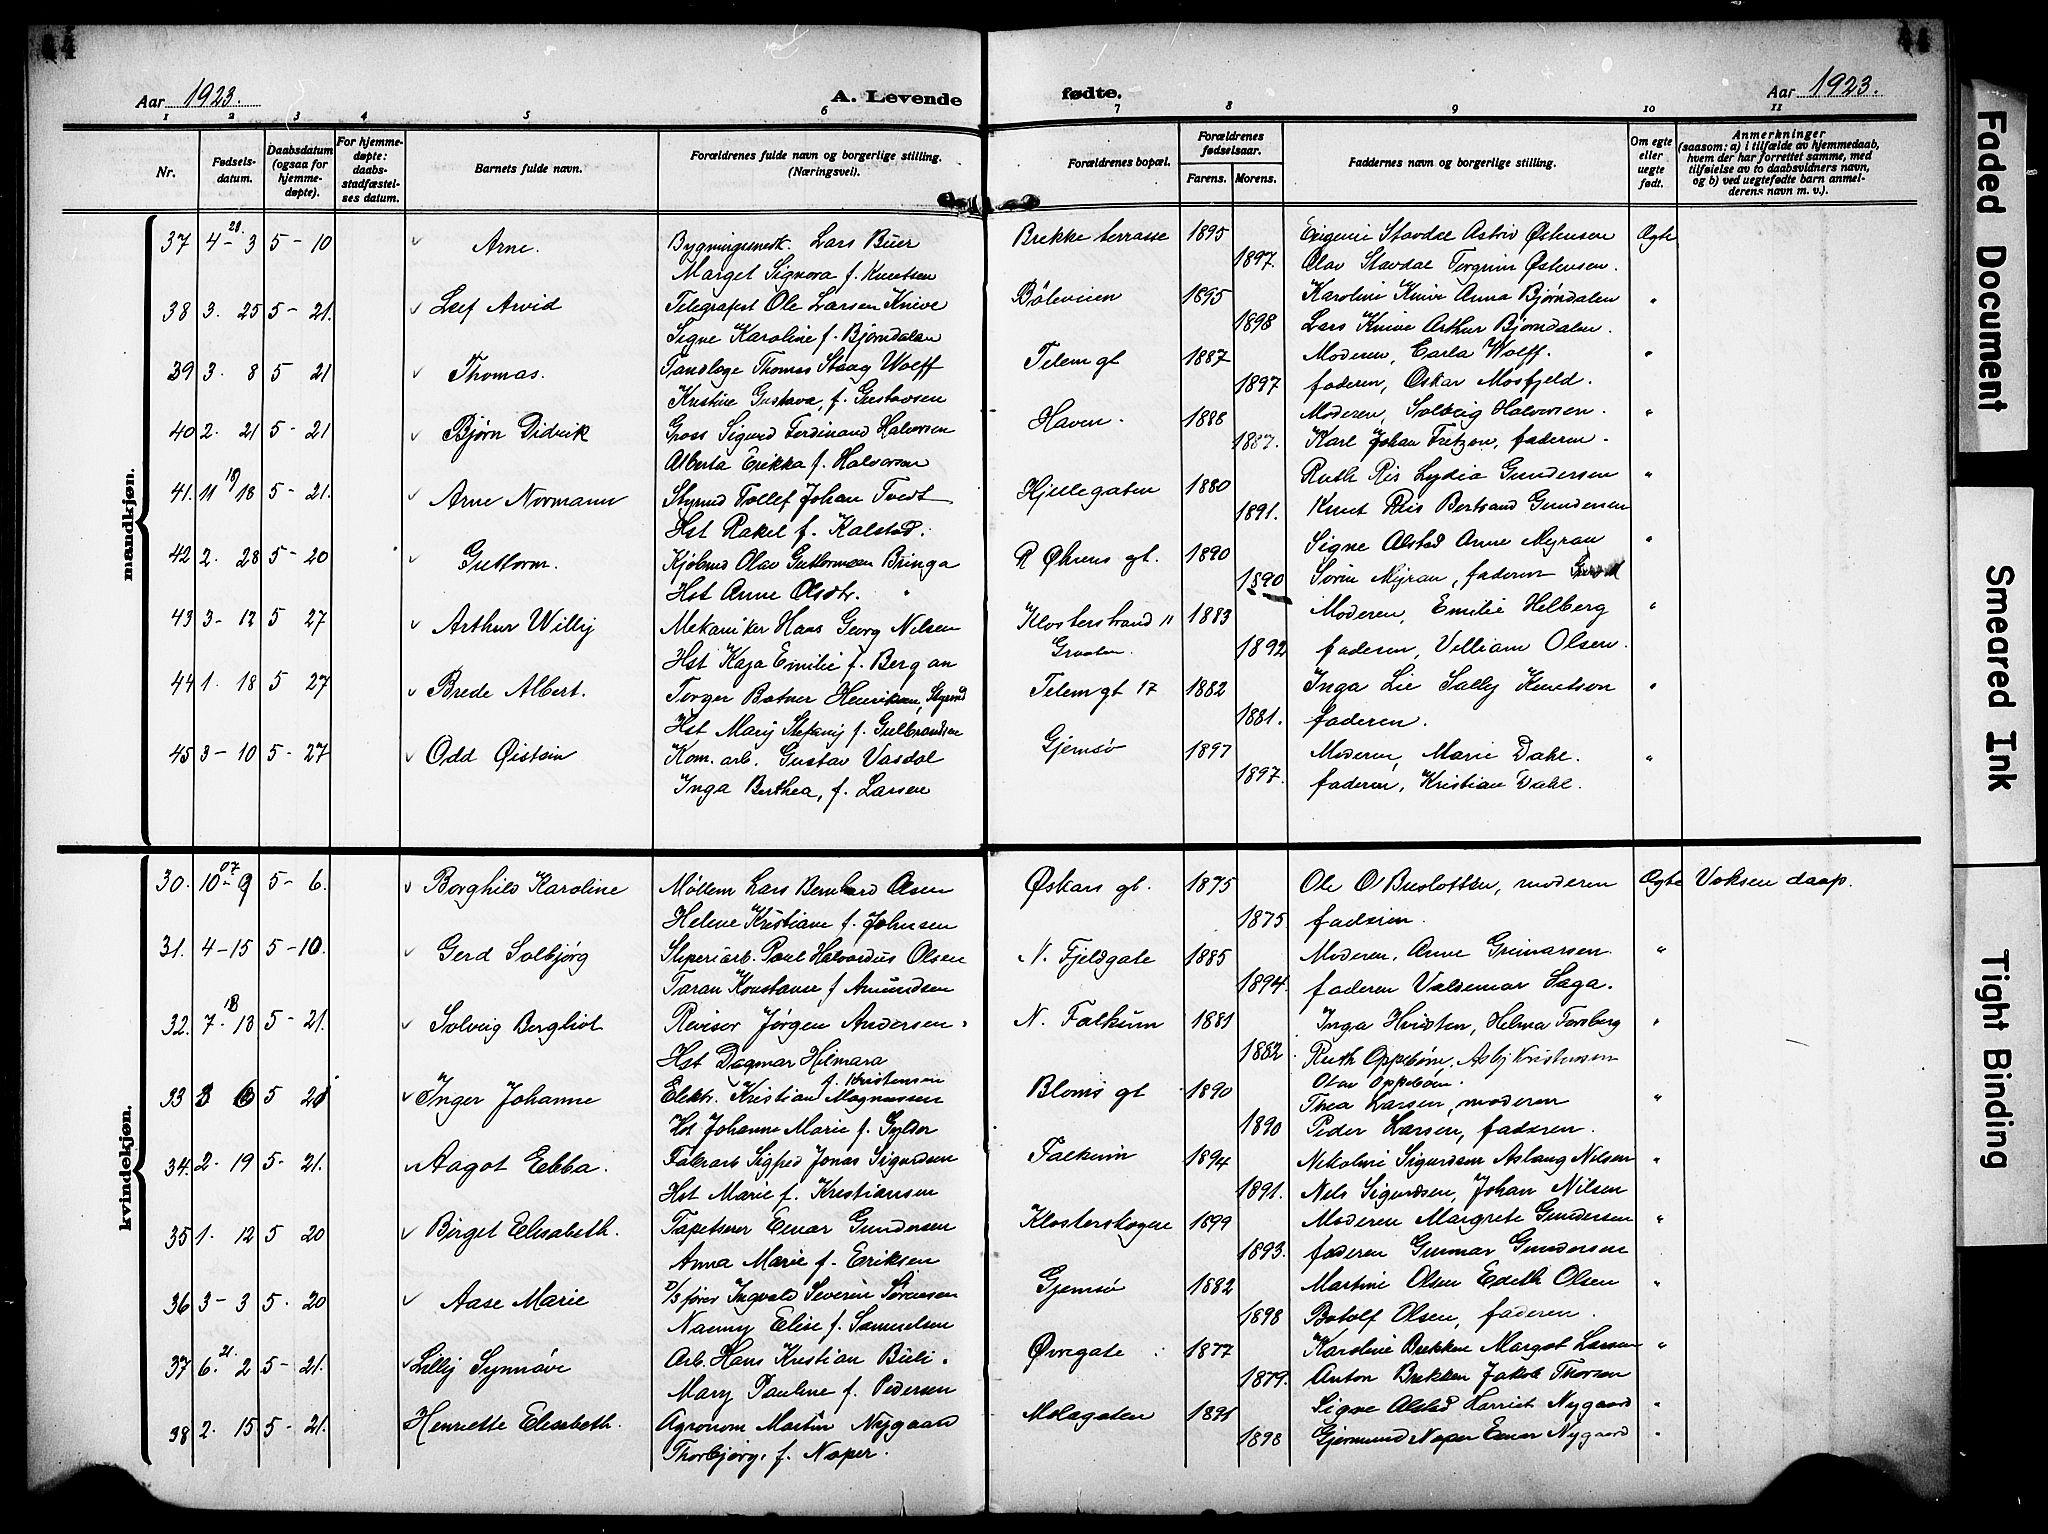 44
44
Aar 1923.
A. Levende
fødte.
Aar 1923.
1 2 3 4 5 6 7 8 9 10 11
Nr.
Fødsels-
datum.
Daabsdatum
(ogsaa for
hjemme-
døpte).
For hjemme-
døpte:
daabs-
stadfæstel-
ses datum.
Barnets fulde navn.
Forældrenes fulde navn og borgerlige stilling.
(Næringsvei).
Forældrenes bopæl.
Forældrenes
fødselsaar.
Farens. Morens.
Faddernes navn og borgerlige stilling.
Om egte
eller
uegte
født.
Anmerkninger
(saasom: a) i tilfælde av hjemmedaab,
hvem der har forrettet samme, med
tilføielse av to daabsvidners navn,
og b) ved uegtefødte barn anmel-
derens navn m. v.).
mandkjøn.
37 4-3 28 5-10 Arne. Lars Buer Brekke terrasse 1895 Eugenie Stavdal Astrid Østensen Ægte
Marget Signora f. Knutsen 1897. Olav Stavdal Torgrim Østensen.
38 3. 25 5-21. Leif Arvid Telegrafist Ole Larsen Knive Bøleveien 1895 Karoline Knive Anna Bjørndalen "
Signe Karoline f. Bjørndalen 1898 Lars Knive Arthur Bjørndalen.
39 3. 8 5 21 Thomas. Tandlæge Thomas Staag Wolff Telem gt 1887 Moderen, Carla Wolff. "
Kristine Gustava, f. Gustavsen 1897 faderen, Oskar Mosfjeld.
40 2. 21 5-21 Bjørn Didrik Gross Sigurd Ferdinand Halvorsen Haven. 1888 Moderen, Solveig Halvorsen. "
Alberta Erikka f. Halvorsen 1887. Karl Johan Fretzen, faderen.
41. 11 18 19 5-21. Arne Normann Styrmd Tollef Johan Tvedt Hjellegaten 1880 Ruth Ris Lydia Gundersen "
Hst Rakel f. Kalstad. 1891. Knut Ris Bertrand Gundersen
42 2. 28 5-20 Guttorm. Kjøbmd Olav Guttormsen Bringa R Øhrens gt. 1890 Signe Alstad Anne Myran "
Hst Anne Olsdtr. " 1890 Søren Myran, faderen
43 3-12 5 27 Arthur Willy Mekaniker Hans Georg Nilsen Klosterstrand 11 1883 Moderen, Emilie Helberg "
Hst Kaja Emilie f. Bergan Graaten. 1892 faderen, Villiam Olsen.
44 1. 18 5 27 Brede Albert. Torger Botner Henriksen, Styrmd Telem gt 17 1882 Inga Lie Sally Knutson "
Hst Mary Stefany f. Gulbrandsen 1881. faderen.
45 3-10 5-27 Odd Øistein Kom. arb. Gustav Vasdal Gjemsø 1897 Moderen, Marie Dahl. "
Inga Berthea, f. Larsen 1897. faderen, Kristian Dahl.
kvindekjøn.
30. 10-9 07 5-6. Borghild Karoline Møllem Lars Bernhard Olsen Øskars gt. 1875 Ole O Buslotten, moderen Ægte Voksen daap.
Helene Kristiane f. Johnsen 1875 faderen.
31. 4-15 5-10. Gerd Solbjørg Sliperiarb. Paul Halvardus Olsen N. Fjeldgate 1885 Moderen, Anne Greinarsen. "
Taran Konstanse f Amundsen 1894. faderen Valdemar Saga.
32. 7-13 18 5-21. Solveig Bergliot Revisor Jørgen Andersen N. Falkum 1881 Inga Hvidsten, Helma Forsberg "
Hst Dagmar Hilmara 1882. Ruth Oppebøen, Asbj Kristensen
f. Kristensen Olav Oppebøen.
33 3 6 5 21 Inger Johanne Elektr. Kristian Magnussen Bloms gt 1890 Thea Larsen, moderen "
Hst Johanne Marie f. Gylder 1890 Peder Larsen, faderen.
34. 2. 19 5-21. Aagot Ebba. Fabrarb Sigfred Jonas Sigurdsen Falkum 1894 Nikoline Sigurdsen Aslaug Nilsen "
Hst Marie f. Kristiansen 1891. Nels Sigurdsen, Johan Nilsen
35 1. 12 5 20 Birget Elisabeth. Tapetserer Einar Gundersen Klosterskogene 1899 Moderen Margrete Gundersen "
Anna Marie f. Eriksen 1893. faderen Gunnar Gundersen
36 3-3 5. 20 Aase Marie D/sfører Ingvald Severin Sørensen Gjemsø 1882 Martine Olsen Edith Olsen "
Nanny Elise f. Samuelsen 1898 Botolf Olsen, faderen.
37 6. 2 21. 5-21. Lilly Synnøve Arb. Hans Kristian Buli. Øvregate 1877 Karoline Brekken Margot Larsen "
Mary Pauline f. Pedersen 1879. Anton Brekken Jakob Thorsen
38 2. 15 5-21. Henriette Elisabeth. Agronom Martin Nygaard Molagaten 1891 Signe Alstad Harriet Nygaard "
Thorbjørg, f. Naper. 1898 Gjermund Naper Einar Nygaard "
Faded Document
Smeared Ink
Tight Binding